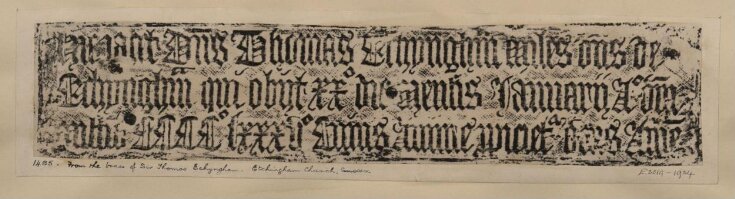 Hic iacet Dn̄s Thomas Echyngh̄m miles dn̄s de
Echyngh̄m qui obijt xx° die mensis Januarij A° dn̄i
mill̄o CCCC° lxxxv° Cuius anime ppiciet̄ deus Ame̅
1485. From the brass of Sir Thomas Echyngham. Etchingham Church, Sussex
E.2019-1924